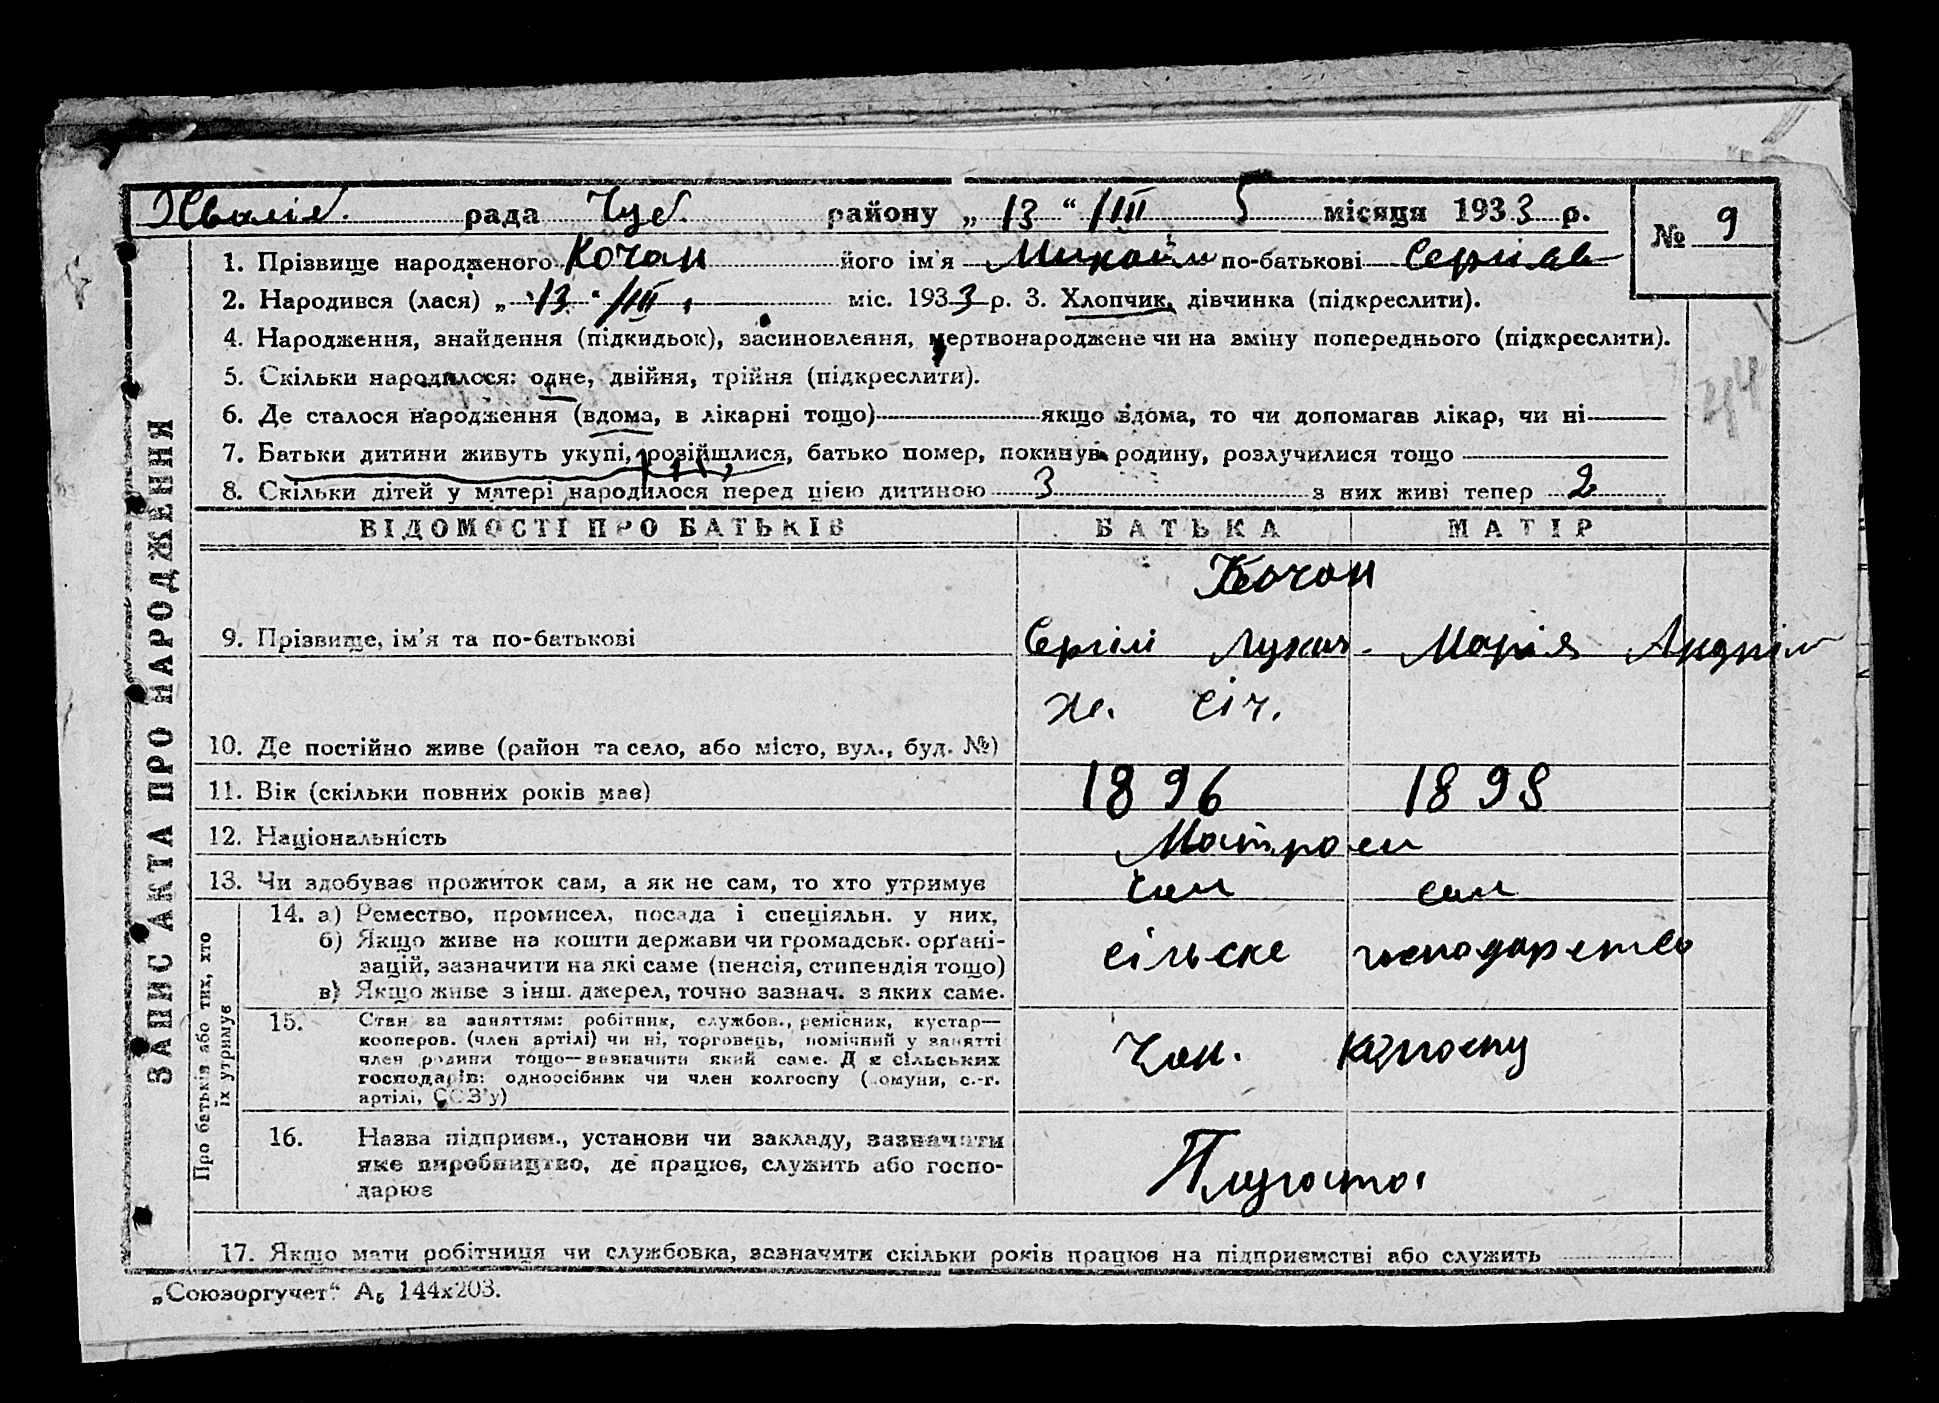 рада Чуб. району „ 13 “ /III 5 місяця 1933 р.
№ 9
1. Прізвище народженого Кочан його ім'я по-батькові
2. Народився (лася) „ 13 “ /III міс. 1933 р. 3. Хлопчик, дівчинка (підкреслити).
4. Народження, знайдення (підкидьок), засиновлення, мертвонароджене чи на зміну попереднього (підкреслити).
5. Скільки народилося: одне, двійня, трійня (підкреслити).
6. Де сталося народження (вдома, в лікарні тощо) якщо вдома, то чи допомагав лікар, чи ні
44
7. Батьки дитини живуть укупі, розійшлися, батько помер, покинув родину, розлучилися тощо
8. Скільки дітей у матері народилося перед цією дитиною 3 з них живі тепер 2
ВІДОМОСТІ ПРО БАТЬКІВ БАТЬКА МАТІР
Кочан
9. Прізвище, ім'я та по-батькові Сергій Лукич. Марія Андрій
10. Де постійно живе (район та село, або місто, вул., буд. №)
11. Вік (скільки повних років має) 1896 1898
12. Національність
13. Чи здобуває прожиток сам, а як не сам, то хто утримує сам сам
14. а) Ремество, промисел, посада і спеціяльн. у них,
б) Якщо живе на кошти держави чи громадськ. орґані-
зацій, зазначити на які саме (пенсія, стипендія тощо)
в) Якщо живе з інш. джерел, точно зазнач. з яких саме.
сільське господарство
15. Стан за заняттям: робітник, службов., ремісник, кустар—
кооперов. (член артілі) чи ні, торговець, помічний у занятті
член родини тощо—зазначити який саме. Для сільських
господарів: одноосібник чи член колгоспу (комуни, с.-г.
артілі, СОЗ'у)
Член. колгоспу
16. Назва підприєм., установи чи закладу, зазначити
яке виробництво, де працює, служить або госпо-
дарює
17. Якщо мати робітниця чи службовка, зазначити скільки років працює на підприємстві або служить
„Союзоргучет“ А₅ 144х203.
ЗАПИС АКТА ПРО НАРОДЖЕННЯ
Про батьків або тих, хто
їх утримує